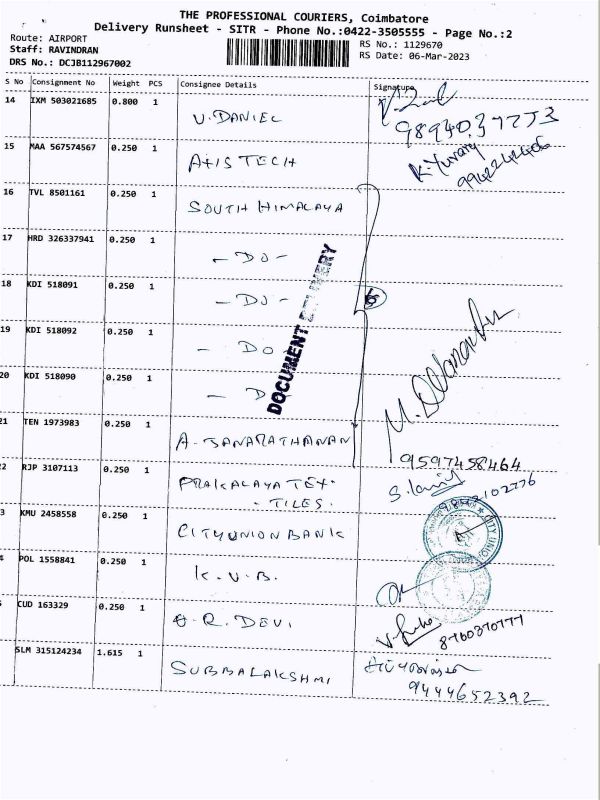 THE PROFESSIONAL COURIERS, Coimbatore
Delivery Runsheet - SITR - Phone No.:0422-3505555 - Page No.:2
Route: AIRPORT
Staff: RAVINDRAN
DRS No.: DCJB112967002
RS No.: 1129670
RS Date: 06-Mar-2023
S No Consignment No Weight PCS Consignee Details Signature
14 IXM 503021685 0.800 1 V. DANIEL
15 MAA 567574567 0.250 1 AXIS TECH
K. Yuvaraj
16 TVL 8501161 0.250 1 SOUTH HIMALAYA
17 HRD 326337941 0.250 1 - DO -
18 KDI 518091 0.250 1 - DO -
19 KDI 518092 0.250 1 - DO
20 KDI 518090 0.250 1
DOCUMENT DELIVERY
21 TEN 1973983 0.250 1 A. JANARATHANAN
9597458464
2 RJP 3107113 0.250 1 PRAKALAYA TEX-
- TILES.
9842102776
3 KMU 2458558 0.250 1 CITY UNION BANK
CITY UNION
4 POL 1558841 0.250 1 K. V. B.
CUD 163329 0.250 1 A. R. DEVI
8760370777
SLM 315124234 1.615 1 SUBBALAKSHMI
9444652392